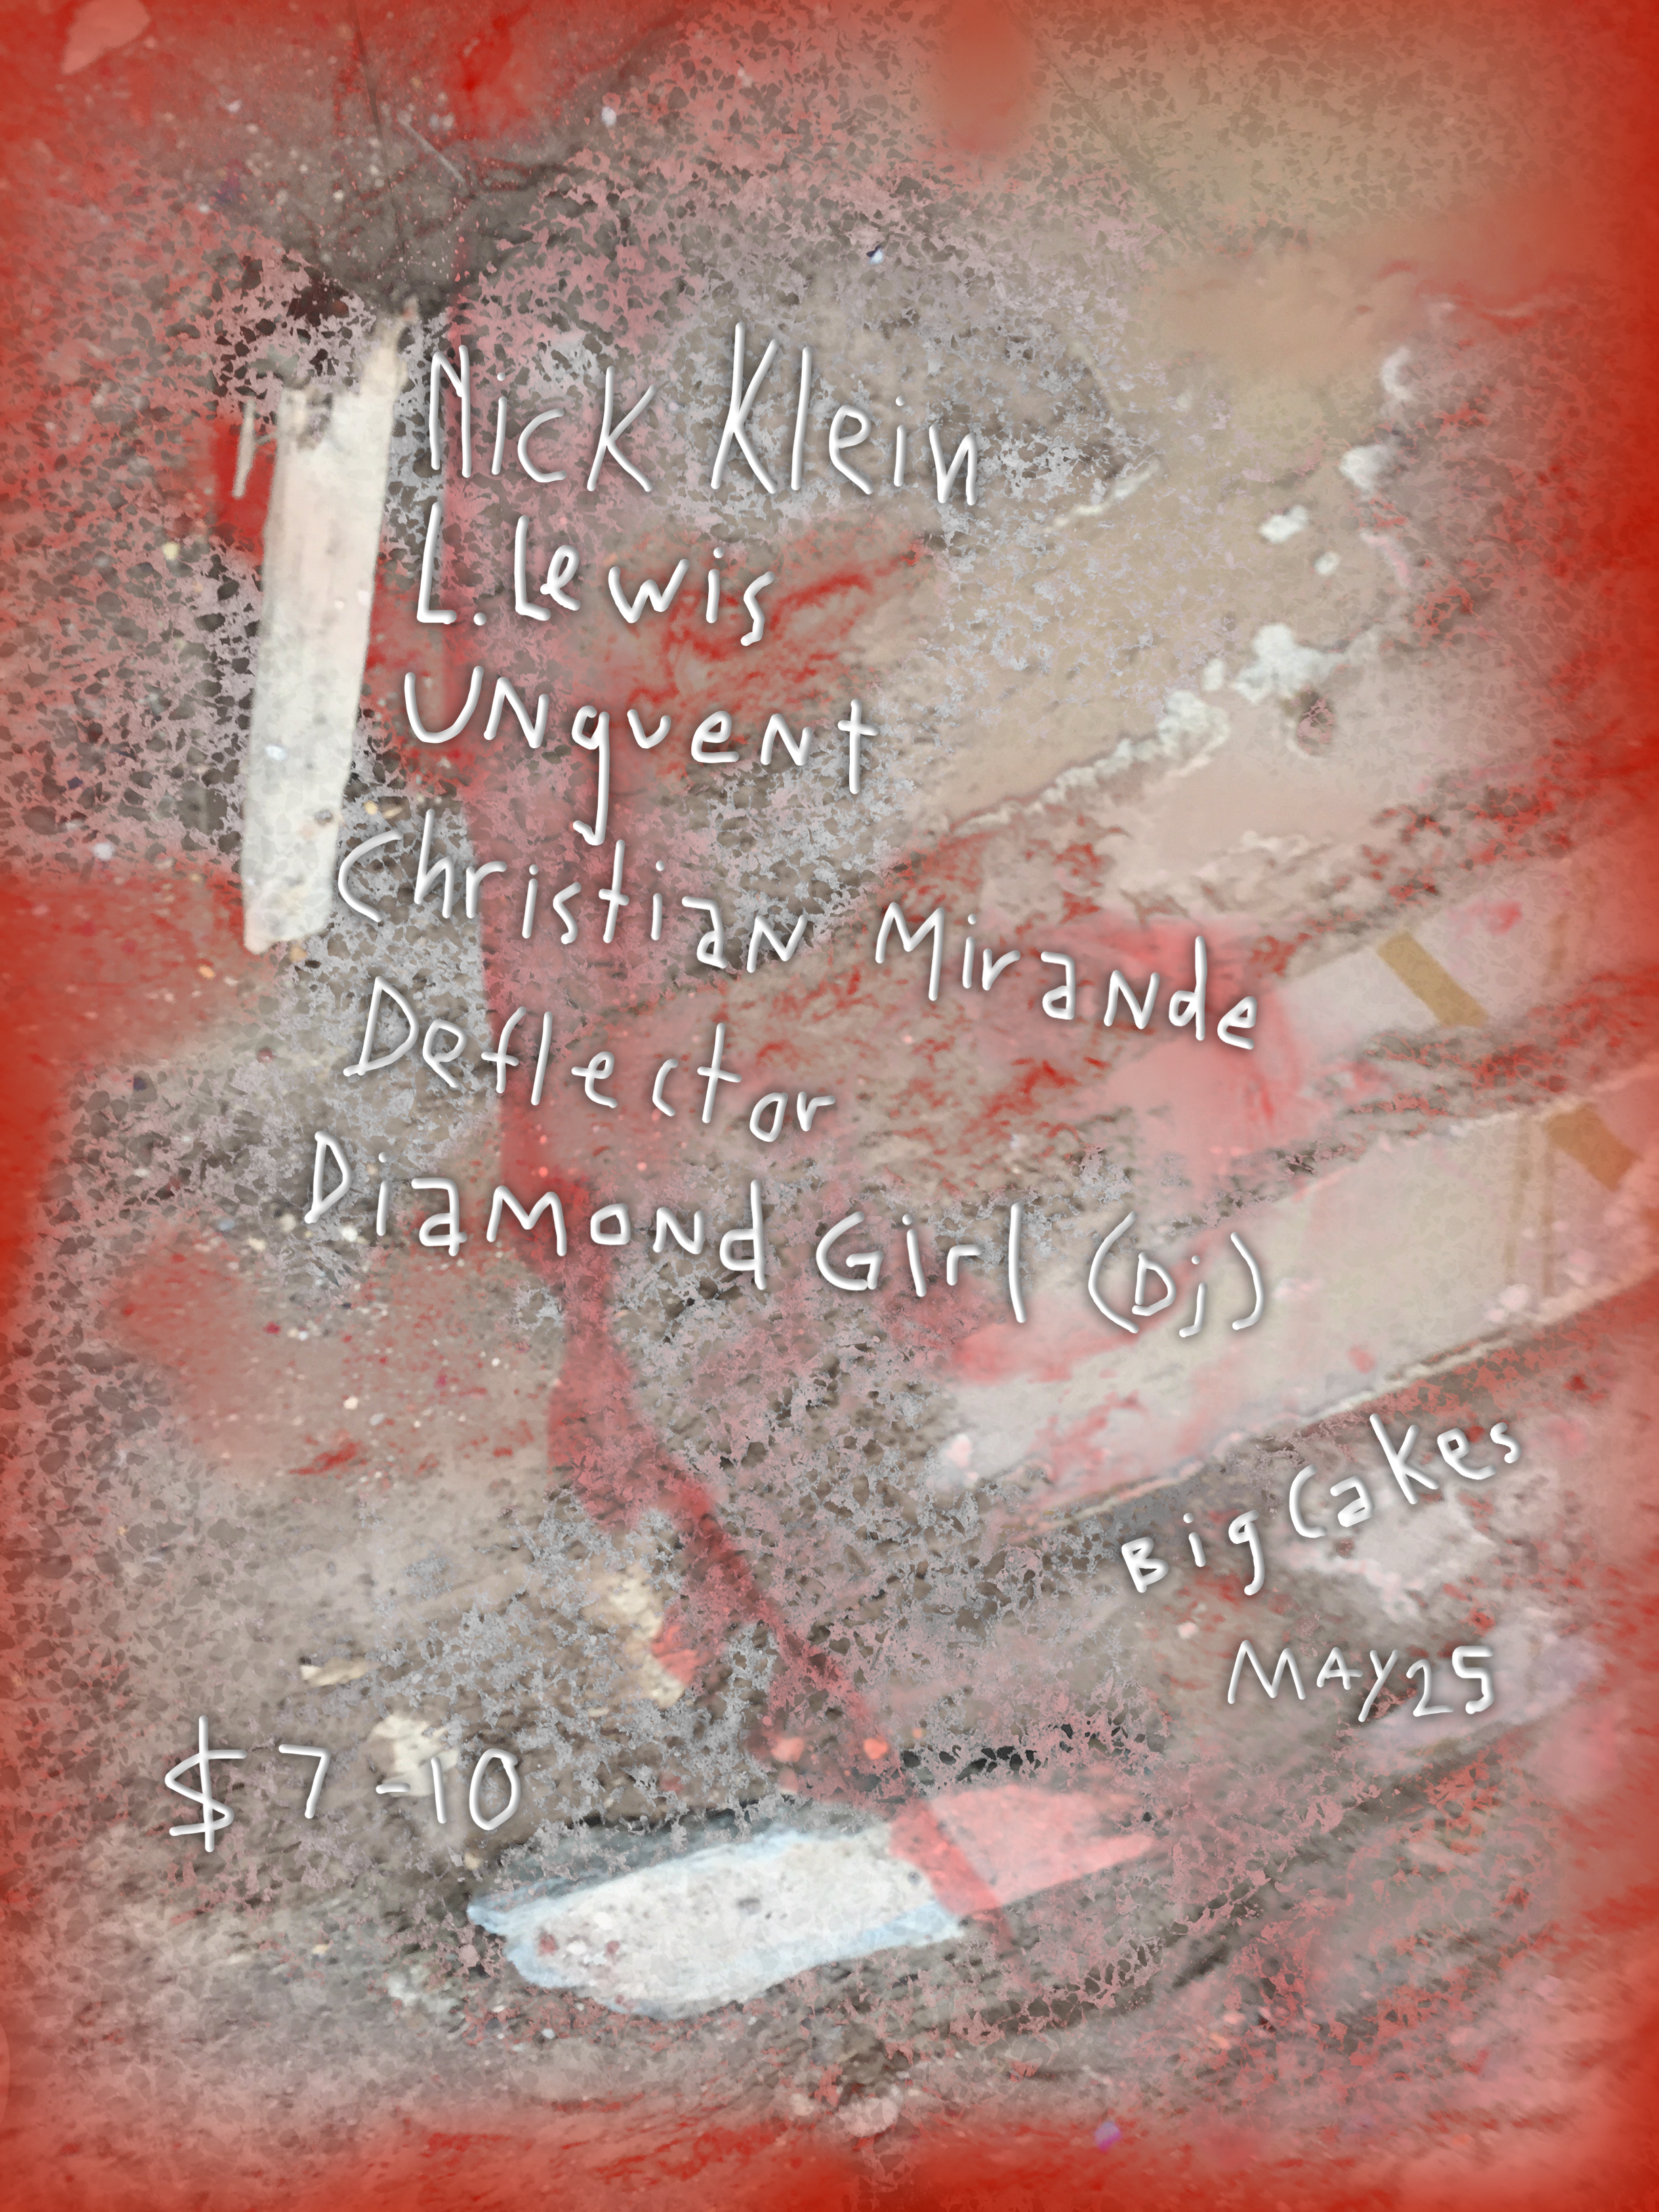 Nick Klein
L. Lewis
UNguent
Christian Mirande
Deflector
Diamond Girl (Dj)
Big Cakes
MAY 25
$7-10